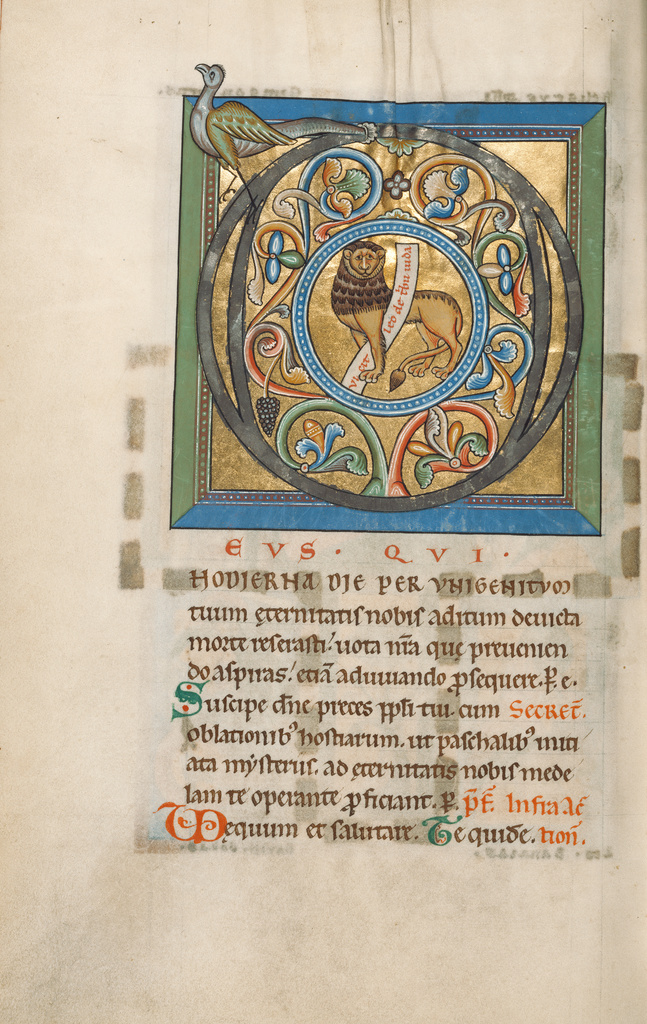 D
leo de tribu iuda
EVS. QVI.
HODIERNA DIE PER VNIGENITVM
tuum ęternitatis nobis aditum deuicta
morte reserasti! uota nr̄a que preuenien
do aspiras! etiā adiuuando ꝓsequere. P̄. e.
Suscipe dn̄e preces ppl̄i tui. cum Secret̄.
oblationibꝰ hostiarum. ut paschalibꝰ initi
ata mẏsteriis. ad ęternitatis nobis mede
lam te operante ꝓficiant. P̄. p̄f. Infra Ac̄
Vequum et salutare. Te quidē. tion̄.